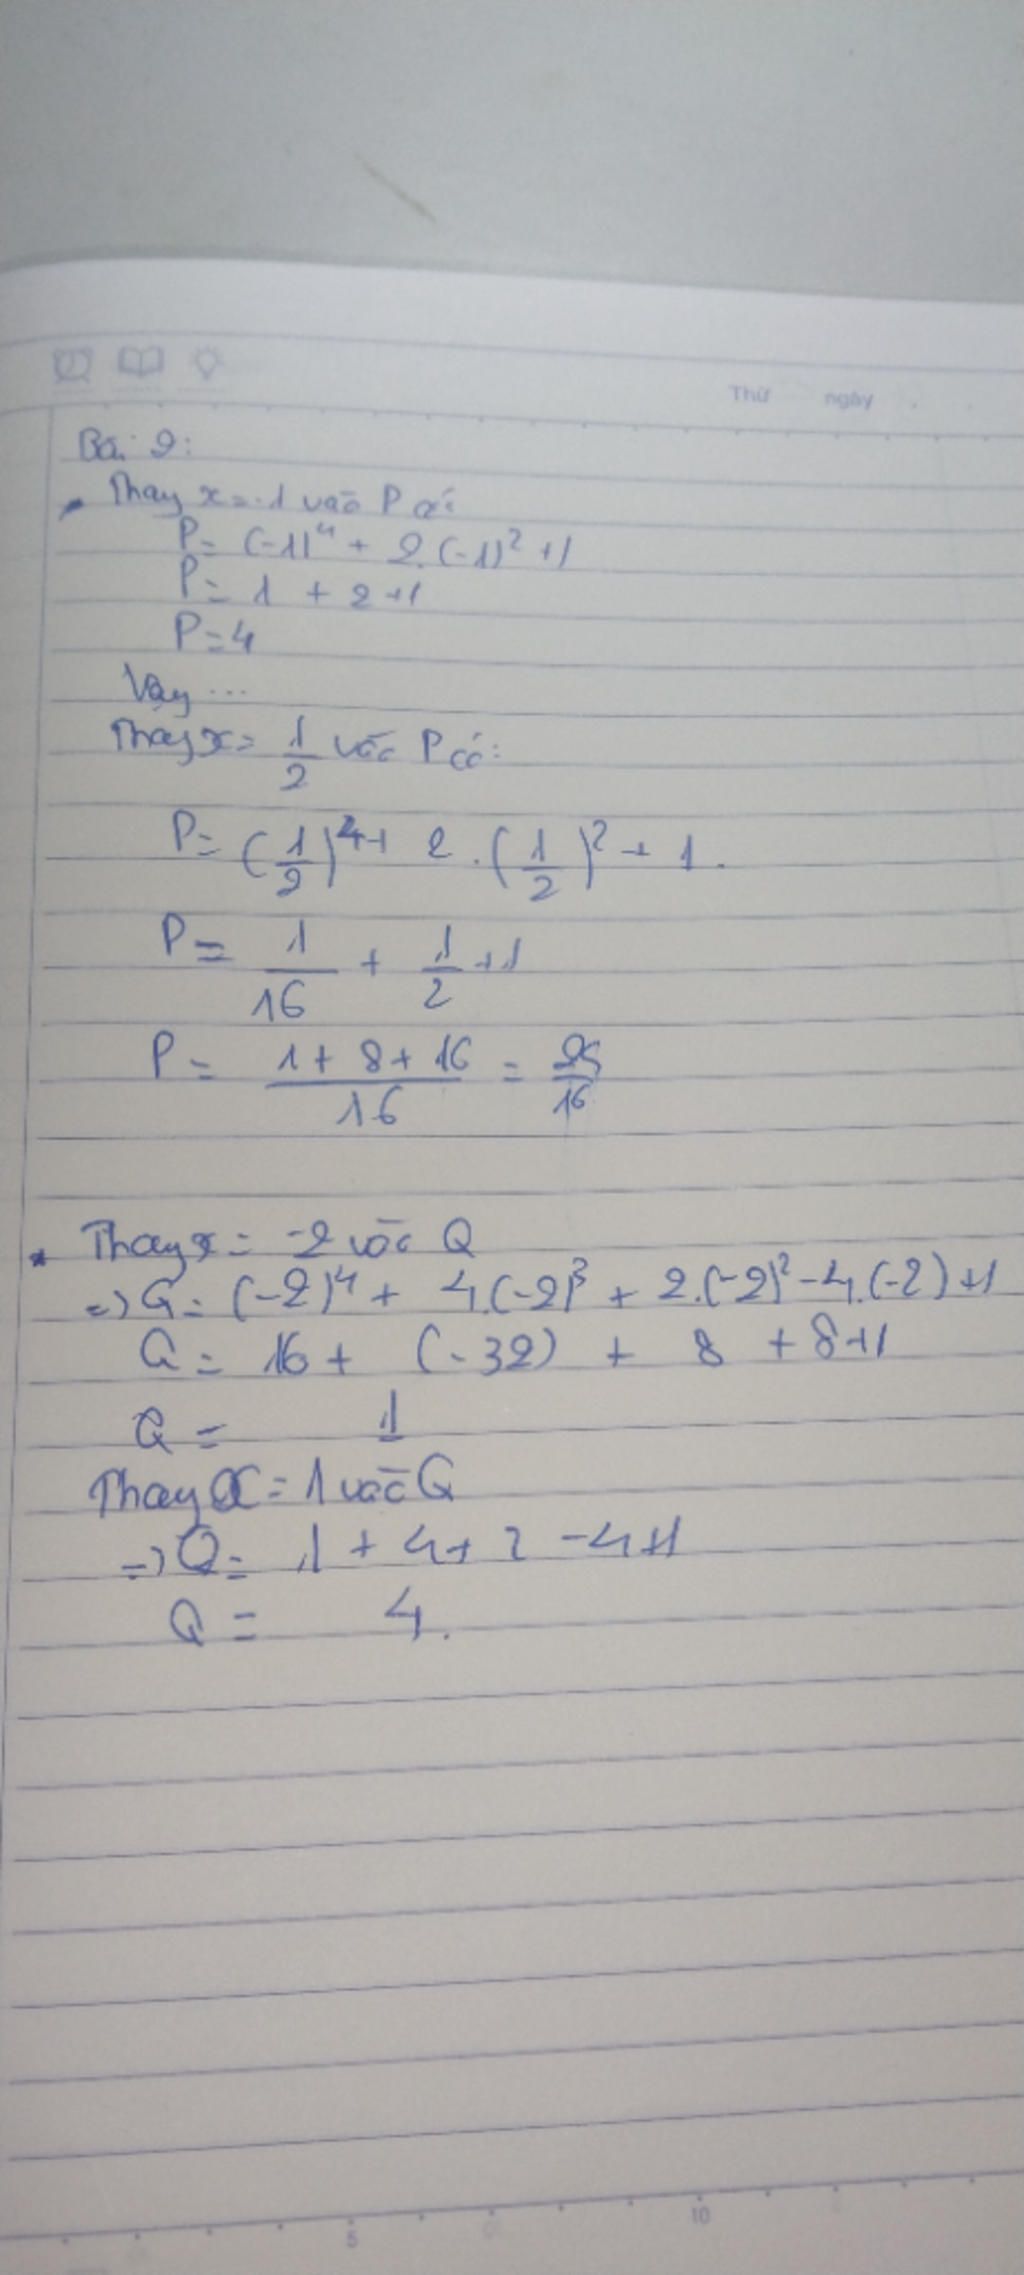 Thứ ngày
Bài 2:
Thay x = -1 vào P có:
P = (-1)⁴ + 2.(-1)² + 1
P = 1 + 2 + 1
P = 4
Vậy ...
Thay x = 1/2 vào P có:
P = (1/2)⁴ + 2 . (1/2)² + 1.
P = 1/16 + 1/2 + 1
P = (1 + 8 + 16)/16 = 25/16
Thay x = -2 vào Q
=> Q = (-2)⁴ + 4.(-2)³ + 2.(-2)² - 4.(-2) + 1
Q = 16 + (-32) + 8 + 8 + 1
Q = 1
Thay x = 1 vào Q
=> Q = 1 + 4 + 2 - 4 + 1
Q = 4.
5 10